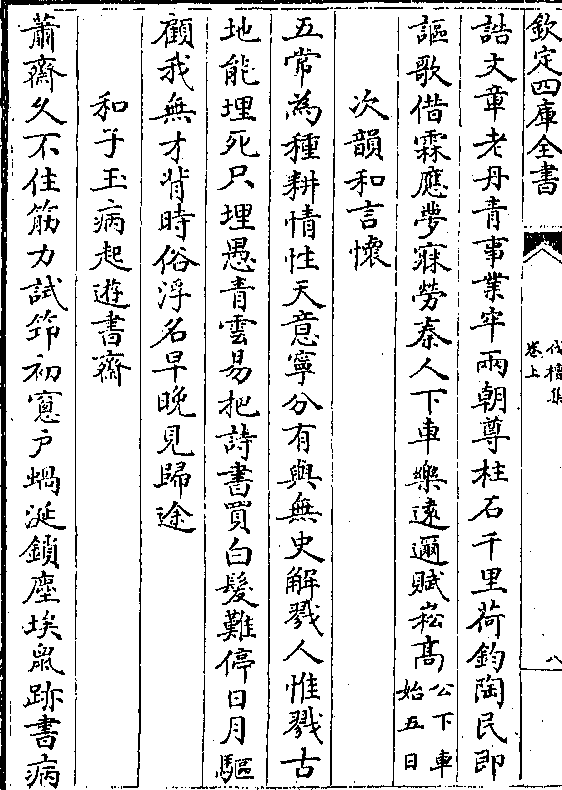 欽定四庫全書
伐檀集
卷上
八
誥文章老丹青事業牢兩朝尊柱石千里荷鈞陶民即
謳歌借霖應夢寐勞秦人下車樂遠邇賦崧高公下車始五日
次韻和言懷
五常為種耕情性天意寧分有與無史解戮人惟戮古
地能埋死只埋愚青雲易把詩書買白髮難停日月驅
顧我無才背時俗浮名早晚見歸途
和子玉病起遊書齋
蕭齋久不住筋力試筇初窻户蝸涎鎖塵埃鼠跡書病